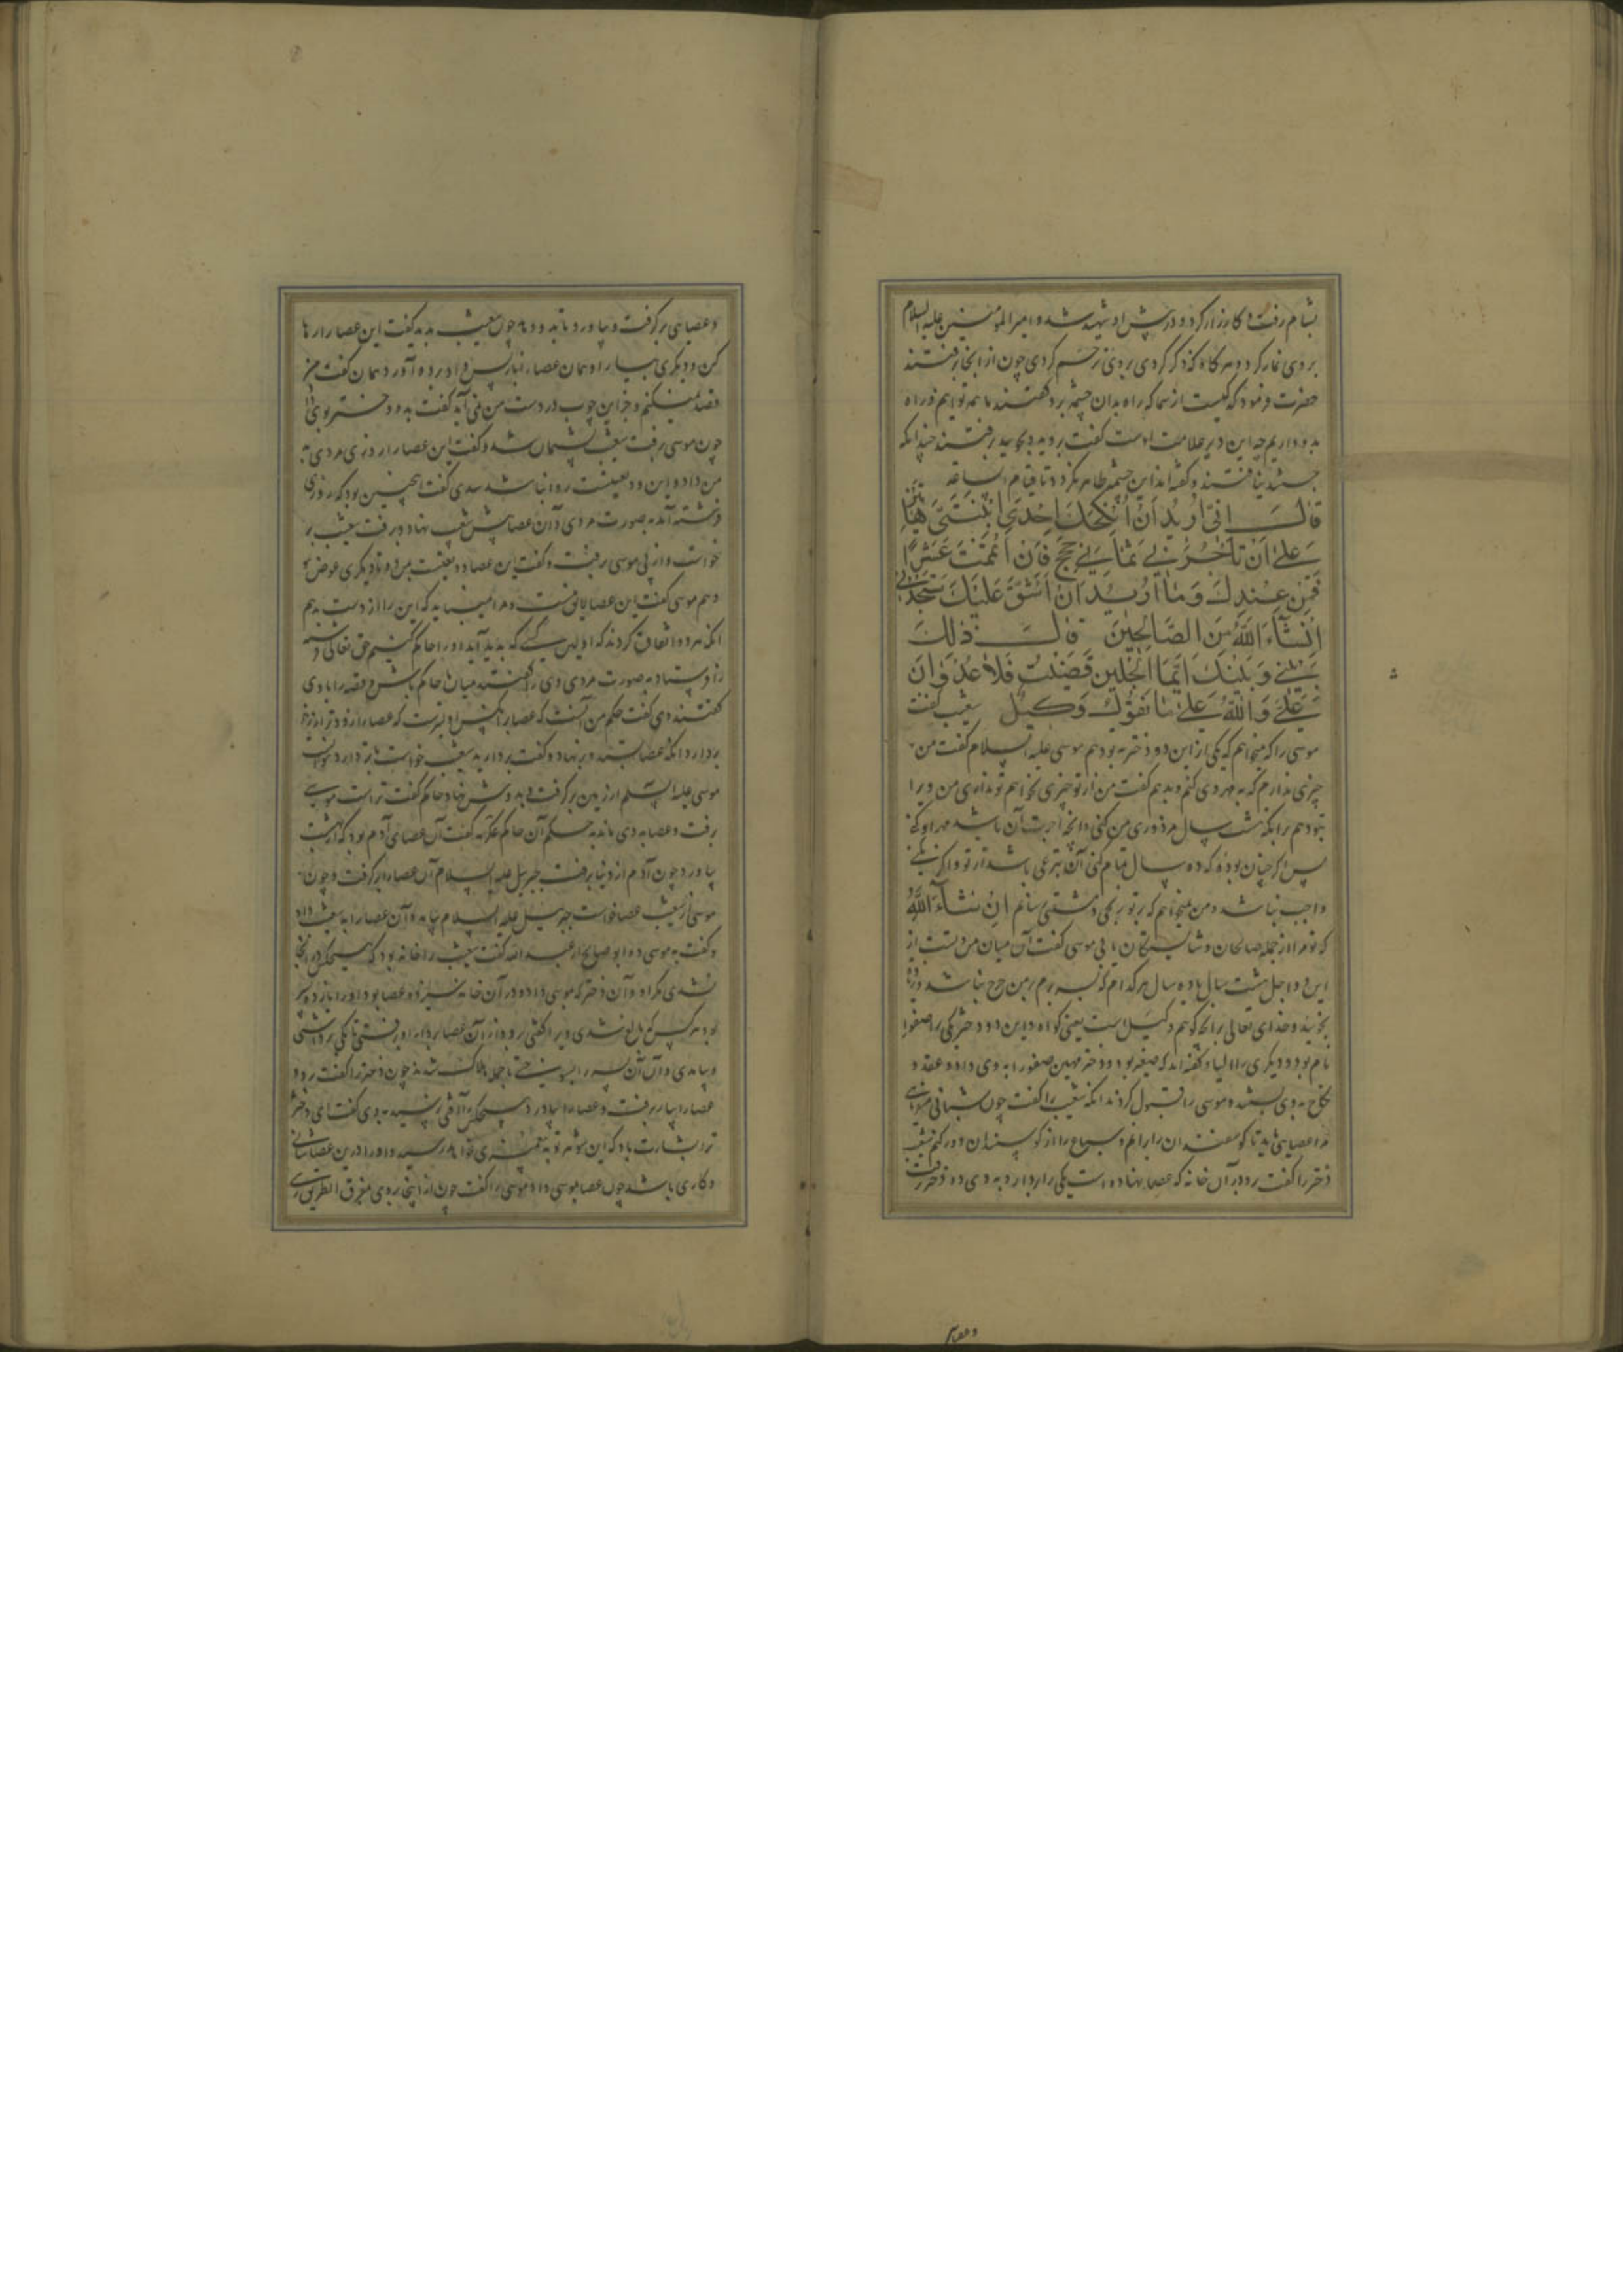 بشام رفت و کارزار کرد و در پیش او شهید شد و امیر المؤمنین علیه السلام
بر وی نماز کرد و هر گاه که ذکر کردی بر وی ترحم کردی چون از انجا رفتند
حضرت فرمود که کیست از شما که راه بدان چشمه برد گفتند ما همه توانیم فرا راه
بدو داریم چه این دیر علامت اوست گفت بروید و بجویید برفتند چندانکه
جستند نیافتند و گفته اند این چشمه ظاهر نکردد تا قیام الساعة
قال انی ارید ان انکحک احدی ابنتی هاتین
علی ان تاجرنی ثمانی حجج فان اتممت عشرا
فمن عندک وما ارید ان اشق علیک ستجدنی
ان شاء الله من الصالحین قال ذلک
بینی وبینک ایما الاجلین قضیت فلا عدوان
علی والله علی ما نقول وکیل شعیب گفت
موسی را که میخواهم که یکی از این دو دختر به تو دهم موسی علیه السلام گفت من
چیزی ندارم که به مهر وی کنم و بدهم گفت من از تو چیزی نخواهم تو نداری من ویرا
بتو دهم برانکه هشت سال مزدوری من کنی و انچه اجرت آن باشد مهر او کنی
پس اگر چنان بود که ده سال تمام کنی آن تبرعی باشد از تو و اگر نکنی
واجب نباشد و من نمیخواهم که بر تو رنجی و مشقتی رسانم ان شاء الله
که تو مرا از جمله صالحان و شایستگان یابی موسی گفت آن میان من و تست از
این دو اجل هشت سال یا ده سال هر کدام که بسر برم بر من حرج نباشد
وخدای تعالی برانچه گوییم وکیل است یعنی گواه و این دو دختر یکی را صفورا
نام بود و دیگری را لیا و گفته اند که صغیر بود و دختر مهین صفورا به وی داد و عقد و
نکاح به وی بستند و موسی را قبول کردند انکه شعیب را گفت چون شبانی
مرا عصایی باید تا گوسفندان را برانم و سباع را از گوسپندان دور کنم شعیب
دختر را گفت رو در آن خانه که عصا نهاده است یکی را بردار و به وی ده دختر رفت
وعصایی
وعصایی بر گرفت و بیاورد تا بدو دهد چون شعیب بدید گفت این عصا را رها
کن و دیگری بیار او همان عصا را باز پس برد و باز آورد همان گفت من
قصد نمیکنم و جز این چوب در دست من نمی آید گفت بدو ده دختر بوی داد
چون موسی برفت شعیب پشیمان شد و گفت این عصا را روزی مردی به
من داد و این ودیعتست روا نباشد سدی گفت اینچنین بود که روزی
فرشته آمد به صورت مردی و آن عصا پیش شعیب نهاد و برفت شعیب بر
خواست و از پی موسی رفت و گفت این عصا ودیعتست بمن ده تا دیگری عوض
دهم موسی گفت این عصا لایق منست و مرا میباید که این را از دست بدهم
انکه هر دو اتفاق کردند که اولین کسی که پدید آید او را حاکم کنیم حق تعالی فرشته
را فرستاد به صورت مردی وی را گفتند میان ما حاکم باش و قصه را با وی
گفتند وی گفت حکم من آنست که عصا را
بردارد انکه عصا بستد و بنهاد و گفت بردارید شعیب خواست تا بردارد نتوانست
موسی علیه السلم از زمین بر گرفت و به دوش نهاد حاکم گفت تراست موسی
برفت و عصا به وی ماند به حکم آن حاکم عکرمه گفت آن عصای آدم بود که از بهشت
بیاورد چون آدم از دنیا برفت جبریل علیه السلام آن عصا را بر گرفت و چون
موسی از شعیب عصا خواست جبرییل علیه السلام بیامد و آن عصا را به شعیب داد
و گفت به موسی ده ابو صالح از عبد الله گفت شعیب را خانه بود که هیچکس در انجا
نشدی مگر او و آن دختر که موسی را داد و در آن خانه سیزده عصا بود و او را یازده پسر
بود هر کس که بالغ شدی ویرا گفتی رو و از آن عصا بردار او برفتی تا یکی برداشتی
چون دختر را گفت رو و
عصا را بیار برفت و عصا را بیاورد
ترا بشارت باد که این شوهر تو پیغمبری خواهد رسید و او را در این عصا شانی
و کاری باشد چون عصا بموسی داد موسی را گفت چون از اینجا بروی مفرق الطریق